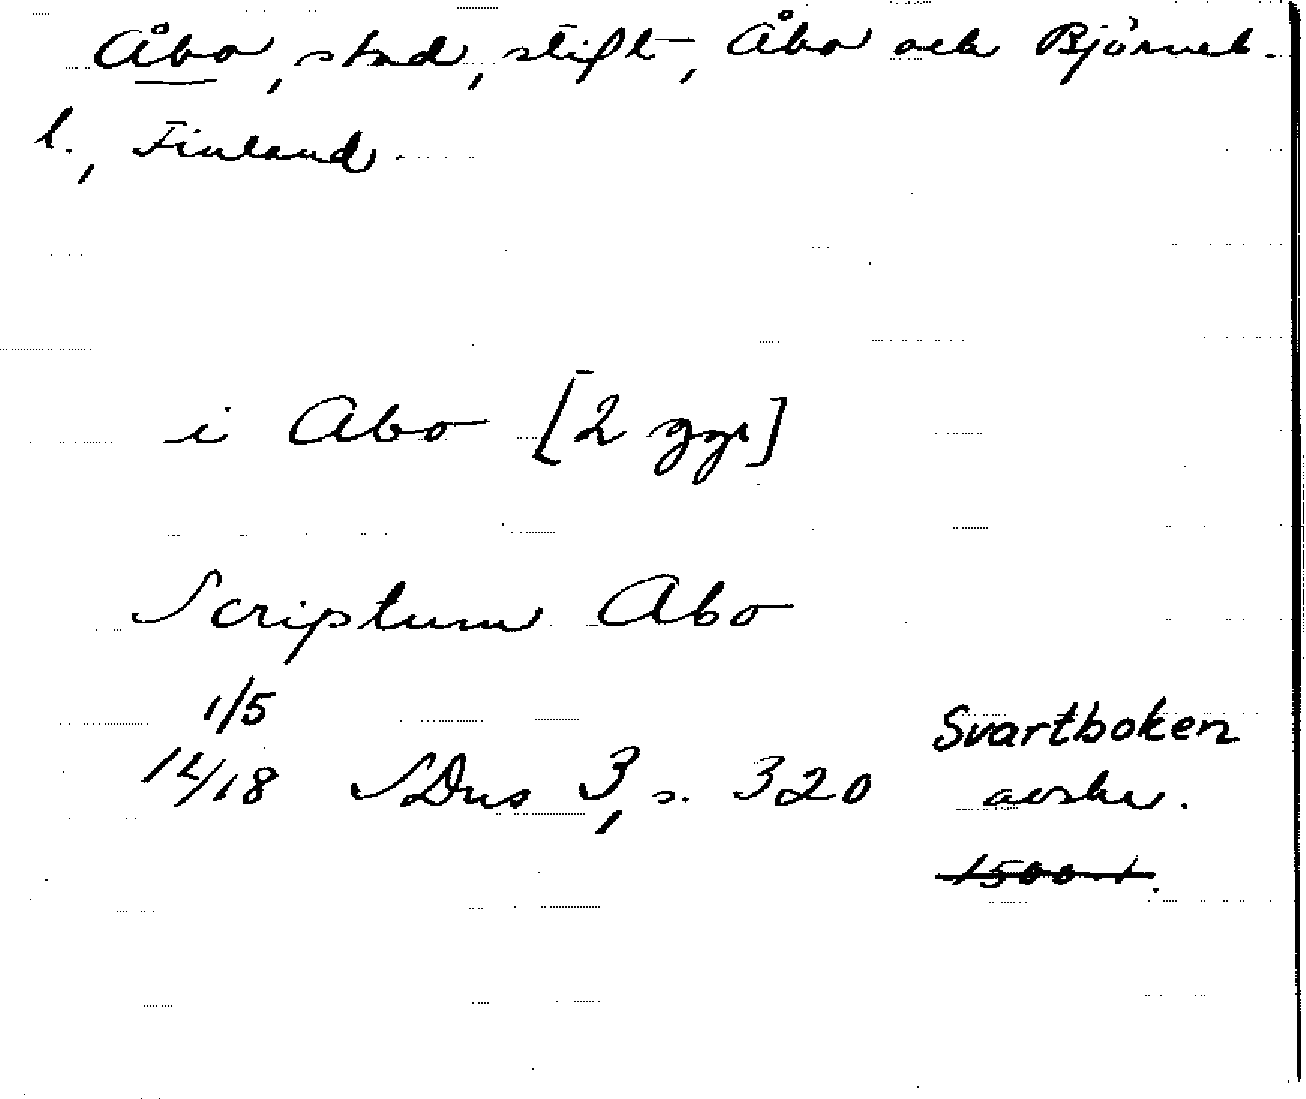 Åbo, stad, stift, Åbo och Björneb.
l., Finland
i Abo [2 ggr]
Scriptum Abo
1/5
1418 SDns 3, s. 320
Svartboken
avskr.
1500-t.